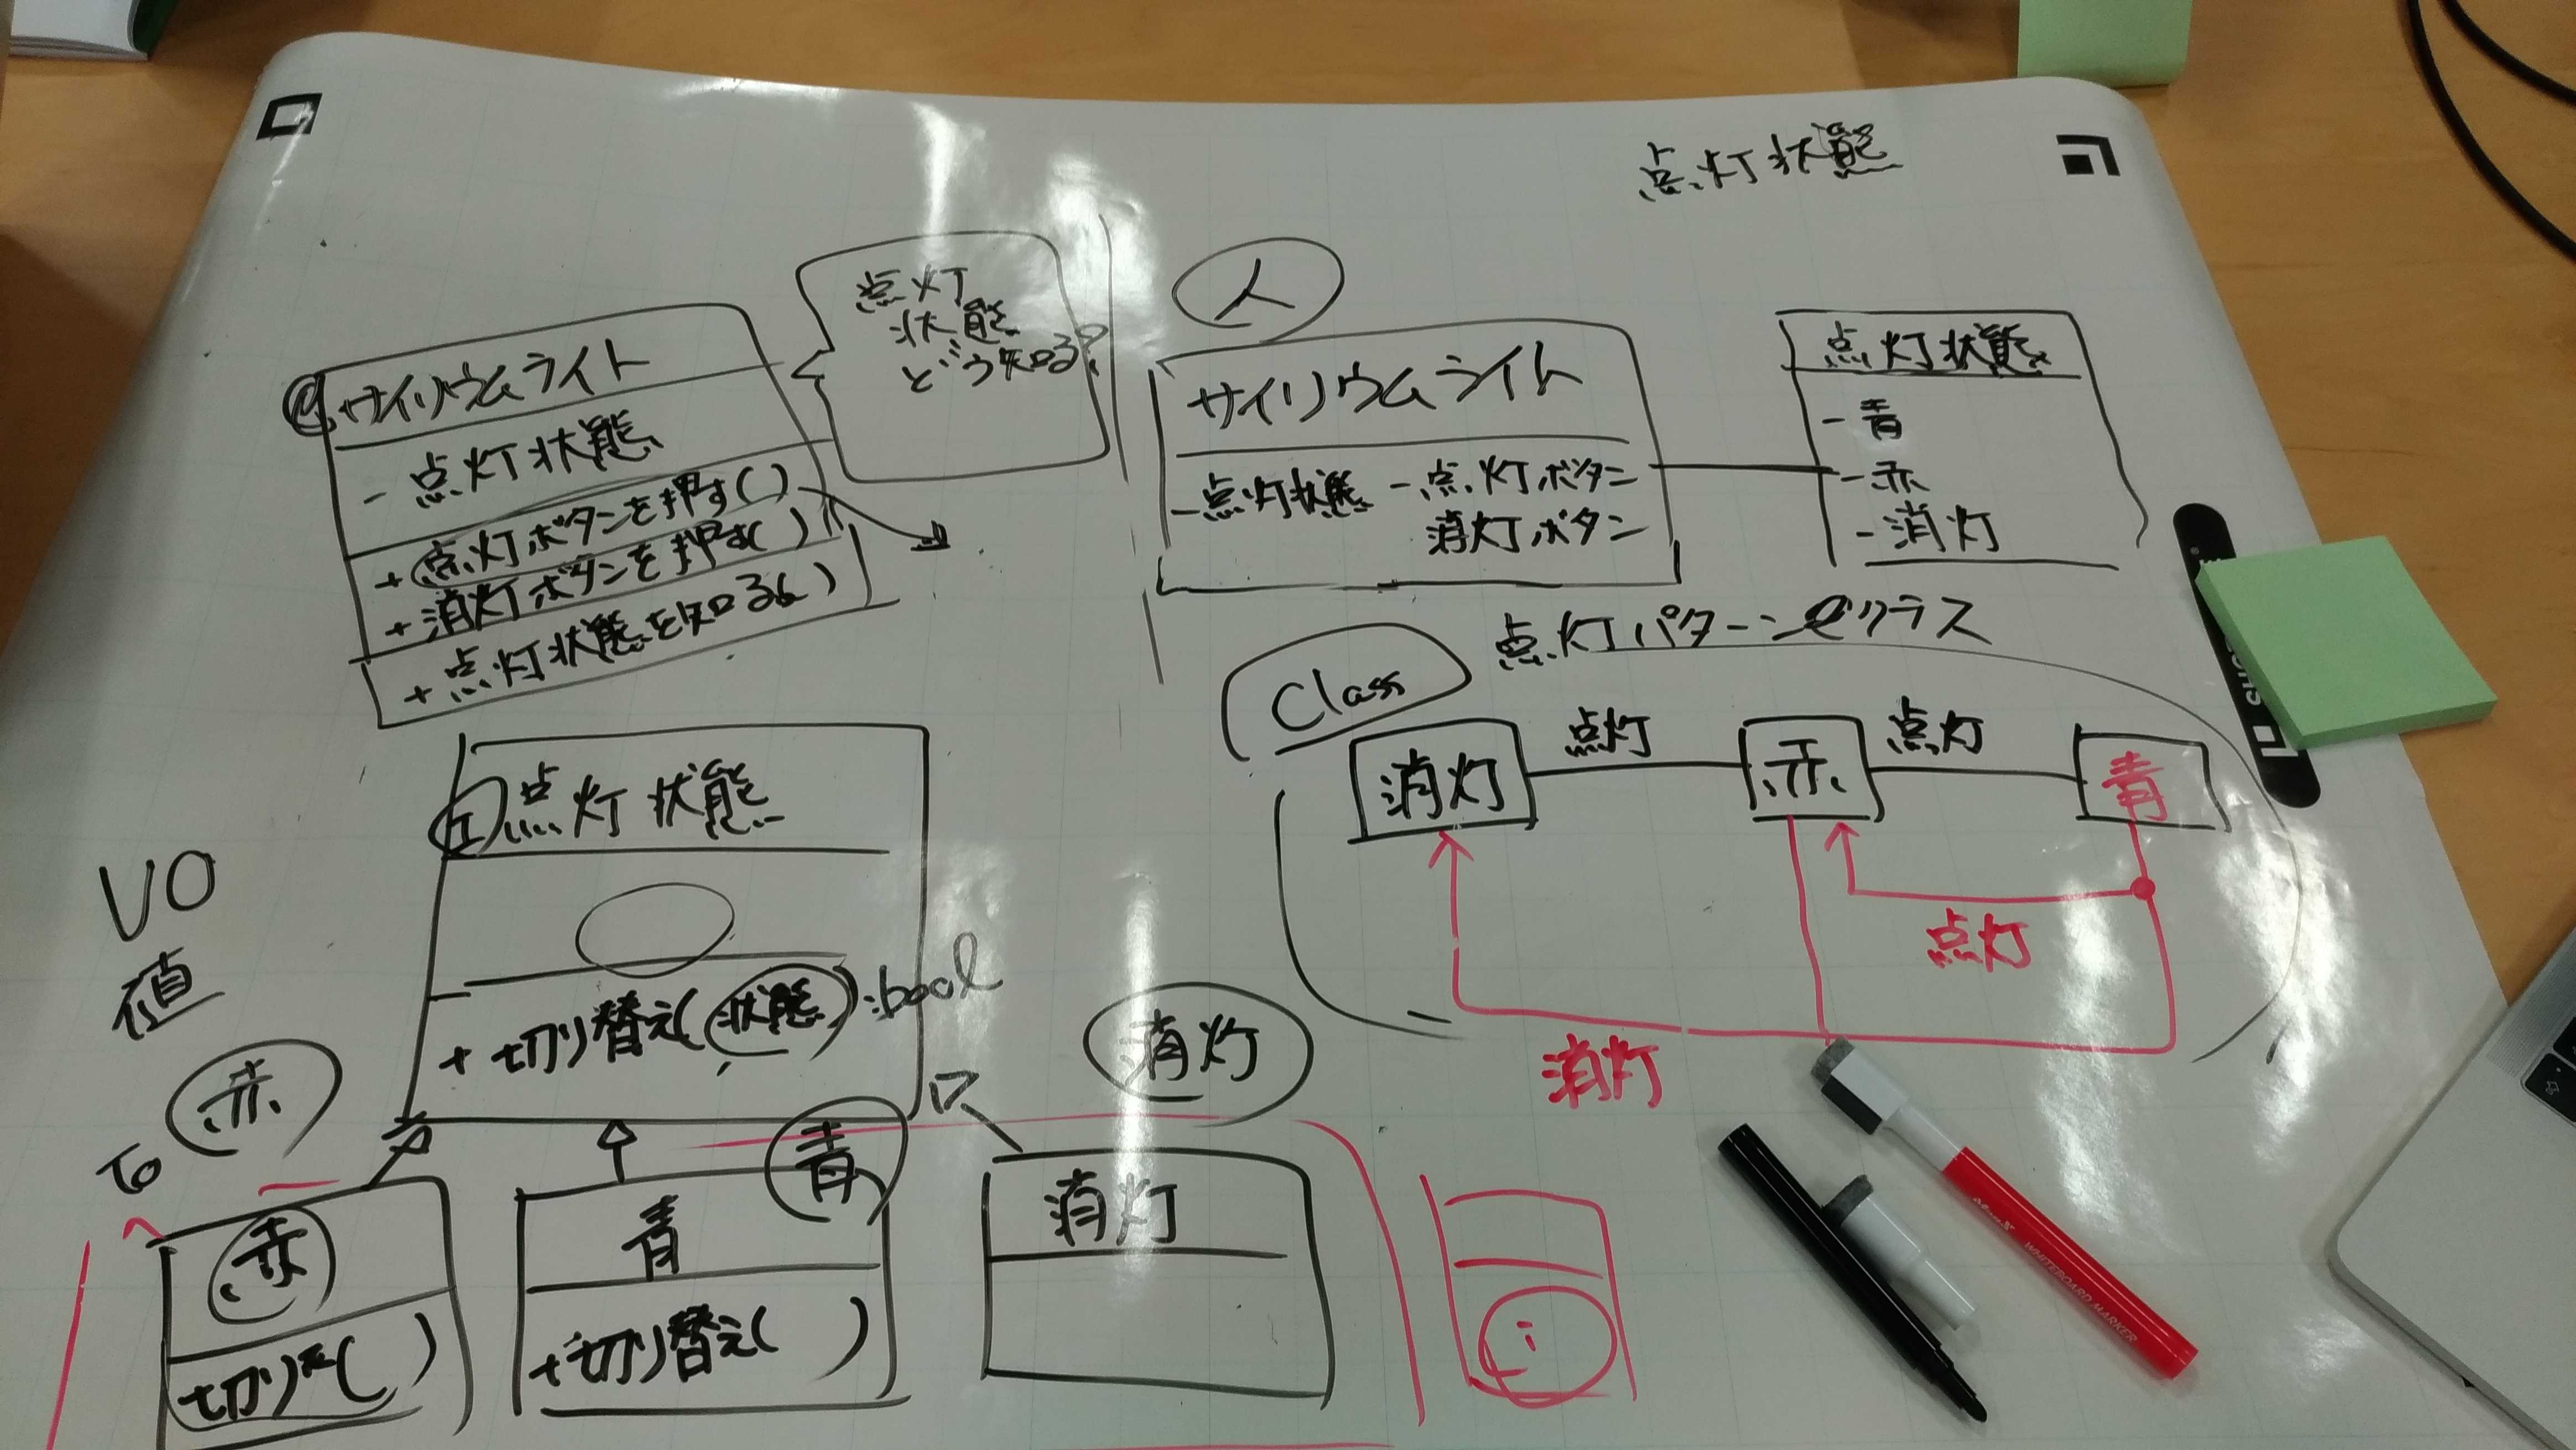 点灯状態
点灯
状態
どう知る?
サイリウムライト
- 点灯状態
+ 点灯ボタンを押す( )
+ 消灯ボタンを押す( )
+ 点灯状態を知る( )
人
サイリウムライト
- 点灯状態 - 点灯ボタン
消灯ボタン
点灯状態
- 青
- 赤
- 消灯
点灯パターン
クラス
Class
消灯 点灯 赤 点灯 青
点灯
消灯
I 点灯状態
+ 切り替え(状態):bool
VO
値
to 赤
赤
切り( )
青
青
+切り替え( )
消灯
消灯
i
WHITEBOARD MARKER